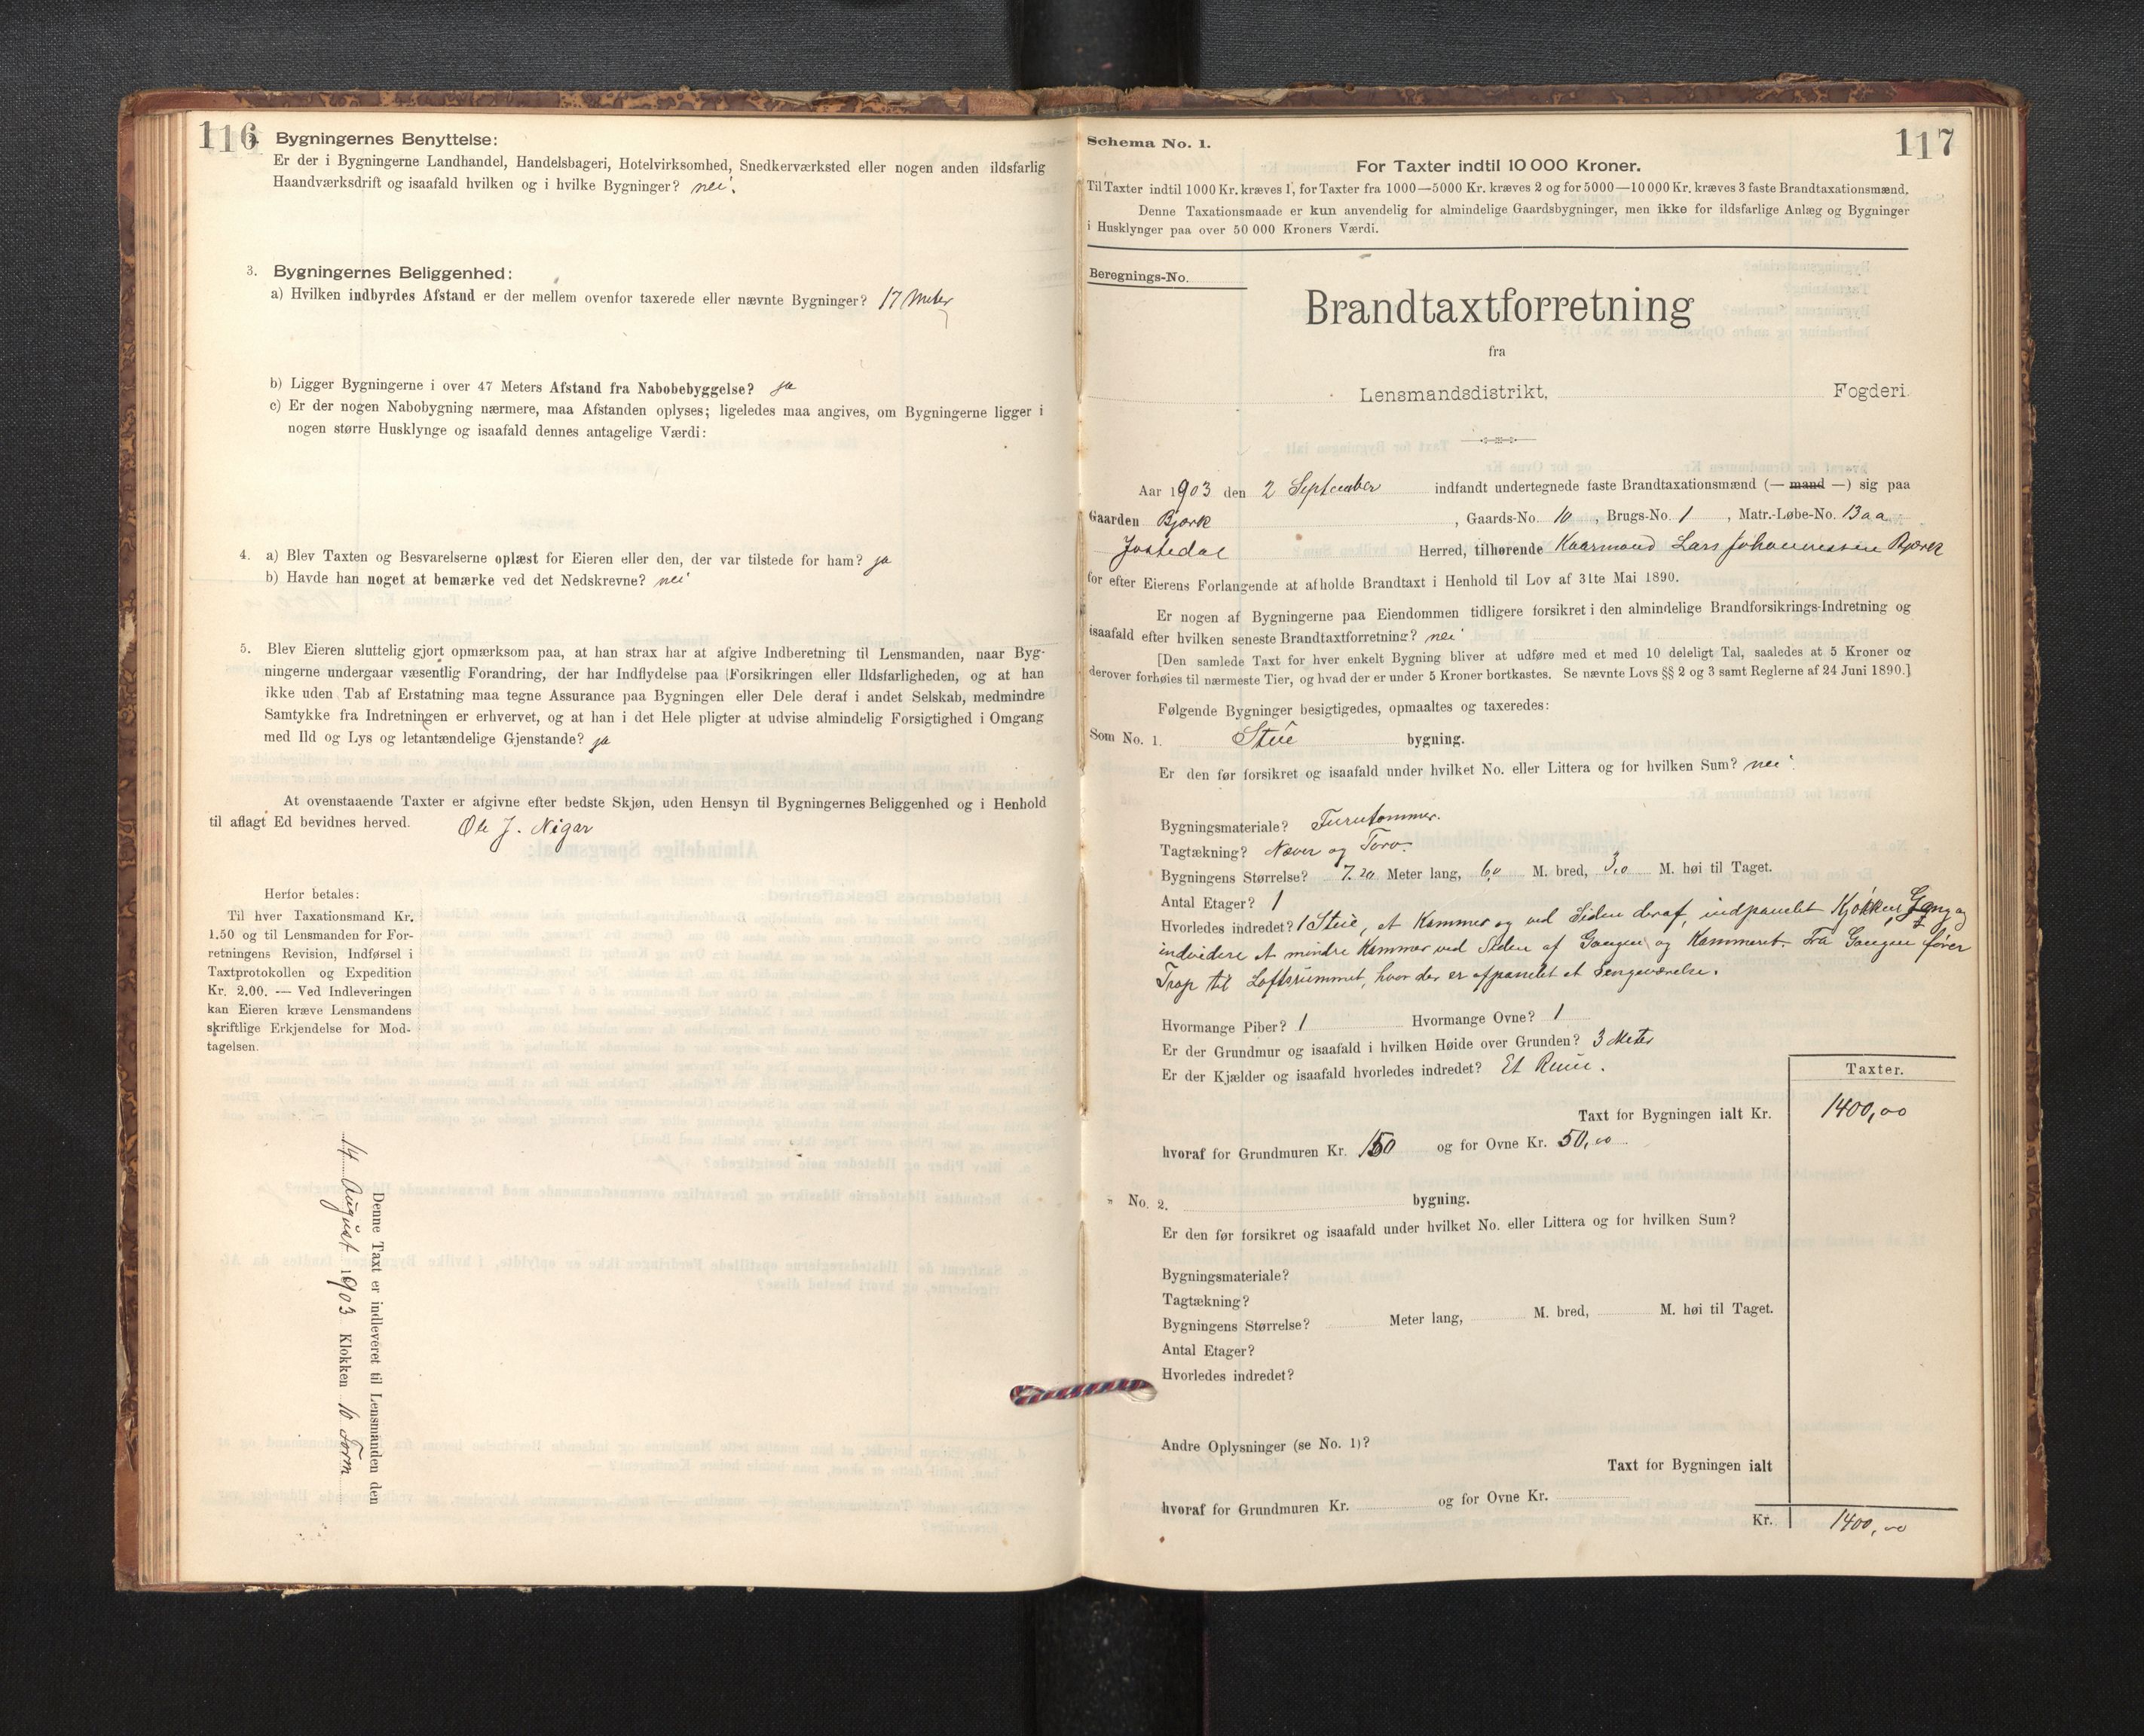 116
Bygningernes Benyttelse:
Er der i Bygningerne Landhandel, Handelsbageri, Hotelvirksomhed, Snedkerværksted eller nogen anden ildsfarlig
Haandværksdrift og isaafald hvilken og i hvilke Bygninger? nei.
3. Bygningernes Beliggenhed:
a) Hvilken indbyrdes Afstand er der mellem ovenfor taxerede eller nævnte Bygninger? 17 Meter
b) Ligger Bygningerne i over 47 Meters Afstand fra Nabobebyggelse? ja
c) Er der nogen Nabobygning nærmere, maa Afstanden oplyses; ligeledes maa angives, om Bygningerne ligger i
nogen større Husklynge og isaafald dennes antagelige Værdi:
4. a) Blev Taxten og Besvarelserne oplæst for Eieren eller den, der var tilstede for ham? ja
b) Havde han noget at bemærke ved det Nedskrevne? nei
5. Blev Eieren sluttelig gjort opmærksom paa, at han strax har at afgive Indberetning til Lensmanden, naar Byg-
ningerne undergaar væsentlig Forandring, der har Indflydelse paa Forsikringen eller Ildsfarligheden, og at han
ikke uden Tab af Erstatning maa tegne Assurance paa Bygningen eller Dele deraf i andet Selskab, medmindre
Samtykke fra Indretningen er erhvervet, og at han i det Hele pligter at udvise almindelig Forsigtighed i Omgang
med Ild og Lys og letantændelige Gjenstande? ja
At ovenstaaende Taxter er afgivne efter bedste Skjøn, uden Hensyn til Bygningernes Beliggenhed og i Henhold
til aflagt Ed bevidnes herved. Ole J. Nigar
Herfor betales:
Til hver Taxationsmand Kr.
1.50 og til Lensmanden for For-
retningens Revision, Indførsel i
Taxtprotokollen og Expedition
Kr. 2.00. — Ved Indleveringen
kan Eieren kræve Lensmandens
skriftlige Erkjendelse for Mod-
tagelsen.
Denne Taxt er indleveret til Lensmanden den
14 August 1903 Klokken 10 Form
117
Schema No. 1.
For Taxter indtil 10 000 Kroner.
Til Taxter indtil 1000 Kr. kræves 1, for Taxter fra 1000—5000 Kr. kræves 2 og for 5000—10 000 Kr. kræves 3 faste Brandtaxationsmænd.
Denne Taxationsmaade er kun anvendelig for almindelige Gaardsbygninger, men ikke for ildsfarlige Anlæg og Bygninger
i Husklynger paa over 50 000 Kroners Værdi.
Beregnings-No.
Brandtaxtforretning
fra
Lensmandsdistrikt, Fogderi
Aar 1903 den 2 September indfandt undertegnede faste Brandtaxationsmænd (— mand —) sig paa
Gaarden Bjørk, Gaards-No. 10, Brugs-No. 1, Matr.-Løbe-No. 13aa
Jostedal Herred, tilhørende Kaarmand Lars Johannessen Bjørk
for efter Eierens Forlangende at afholde Brandtaxt i Henhold til Lov af 31te Mai 1890.
Er nogen af Bygningerne paa Eiendommen tidligere forsikret i den almindelige Brandforsikrings-Indretning og
isaafald efter hvilken seneste Brandtaxtforretning? nei
[Den samlede Taxt for hver enkelt Bygning bliver at udføre med et med 10 deleligt Tal, saaledes at 5 Kroner og
derover forhøies til nærmeste Tier, og hvad der er under 5 Kroner bortkastes. Se nævnte Lovs §§ 2 og 3 samt Reglerne af 24 Juni 1890.]
Følgende Bygninger besigtigedes, opmaaltes og taxeredes:
Som No. 1. Stue bygning.
Er den før forsikret og isaafald under hvilket No. eller Littera og for hvilken Sum? nei.
Bygningsmateriale? Furutømmer.
Tagtækning? Næver og Torv.
Bygningens Størrelse? 7.20 Meter lang, 6,0 M. bred, 3,0 M. høi til Taget.
Antal Etager? 1
Hvorledes indredet? 1 Stue, et Kammer og ved Siden deraf, indpanelet Kjøkken, Gang og
indvidere et mindre Kammer ved Siden af Gangen og Kammeret. Fra Gangen fører
Trap til Loftsrummet, hvor der er afpanelet et Sengeværelse.
Hvormange Piber? 1 Hvormange Ovne? 1
Er der Grundmur og isaafald i hvilken Høide over Grunden? 3 Meter
Er der Kjælder og isaafald hvorledes indredet? Et Rum.
Taxter.
Taxt for Bygningen ialt Kr. 1400,00
hvoraf for Grundmuren Kr. 150 og for Ovne Kr. 50,00
" No. 2. bygning.
Er den før forsikret og isaafald under hvilket No. eller Littera og for hvilken Sum?
Bygningsmateriale?
Tagtækning?
Bygningens Størrelse? Meter lang, M. bred, M. høi til Taget.
Antal Etager?
Hvorledes indredet?
Andre Oplysninger (se No. 1)?
Taxt for Bygningen ialt
hvoraf for Grundmuren Kr. og for Ovne Kr.
Kr. 1400,00